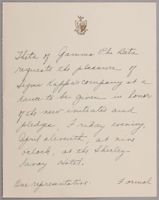 Theta of Gamma Phi Beta
requests the pleasure of
Sigma Kappa's company at a
dance to be given in honor
of the new initiates and
pledges, Friday evening,
April eleventh, at nine
o'clock, at the Shirley-
Savoy Hotel.
One representative. Formal